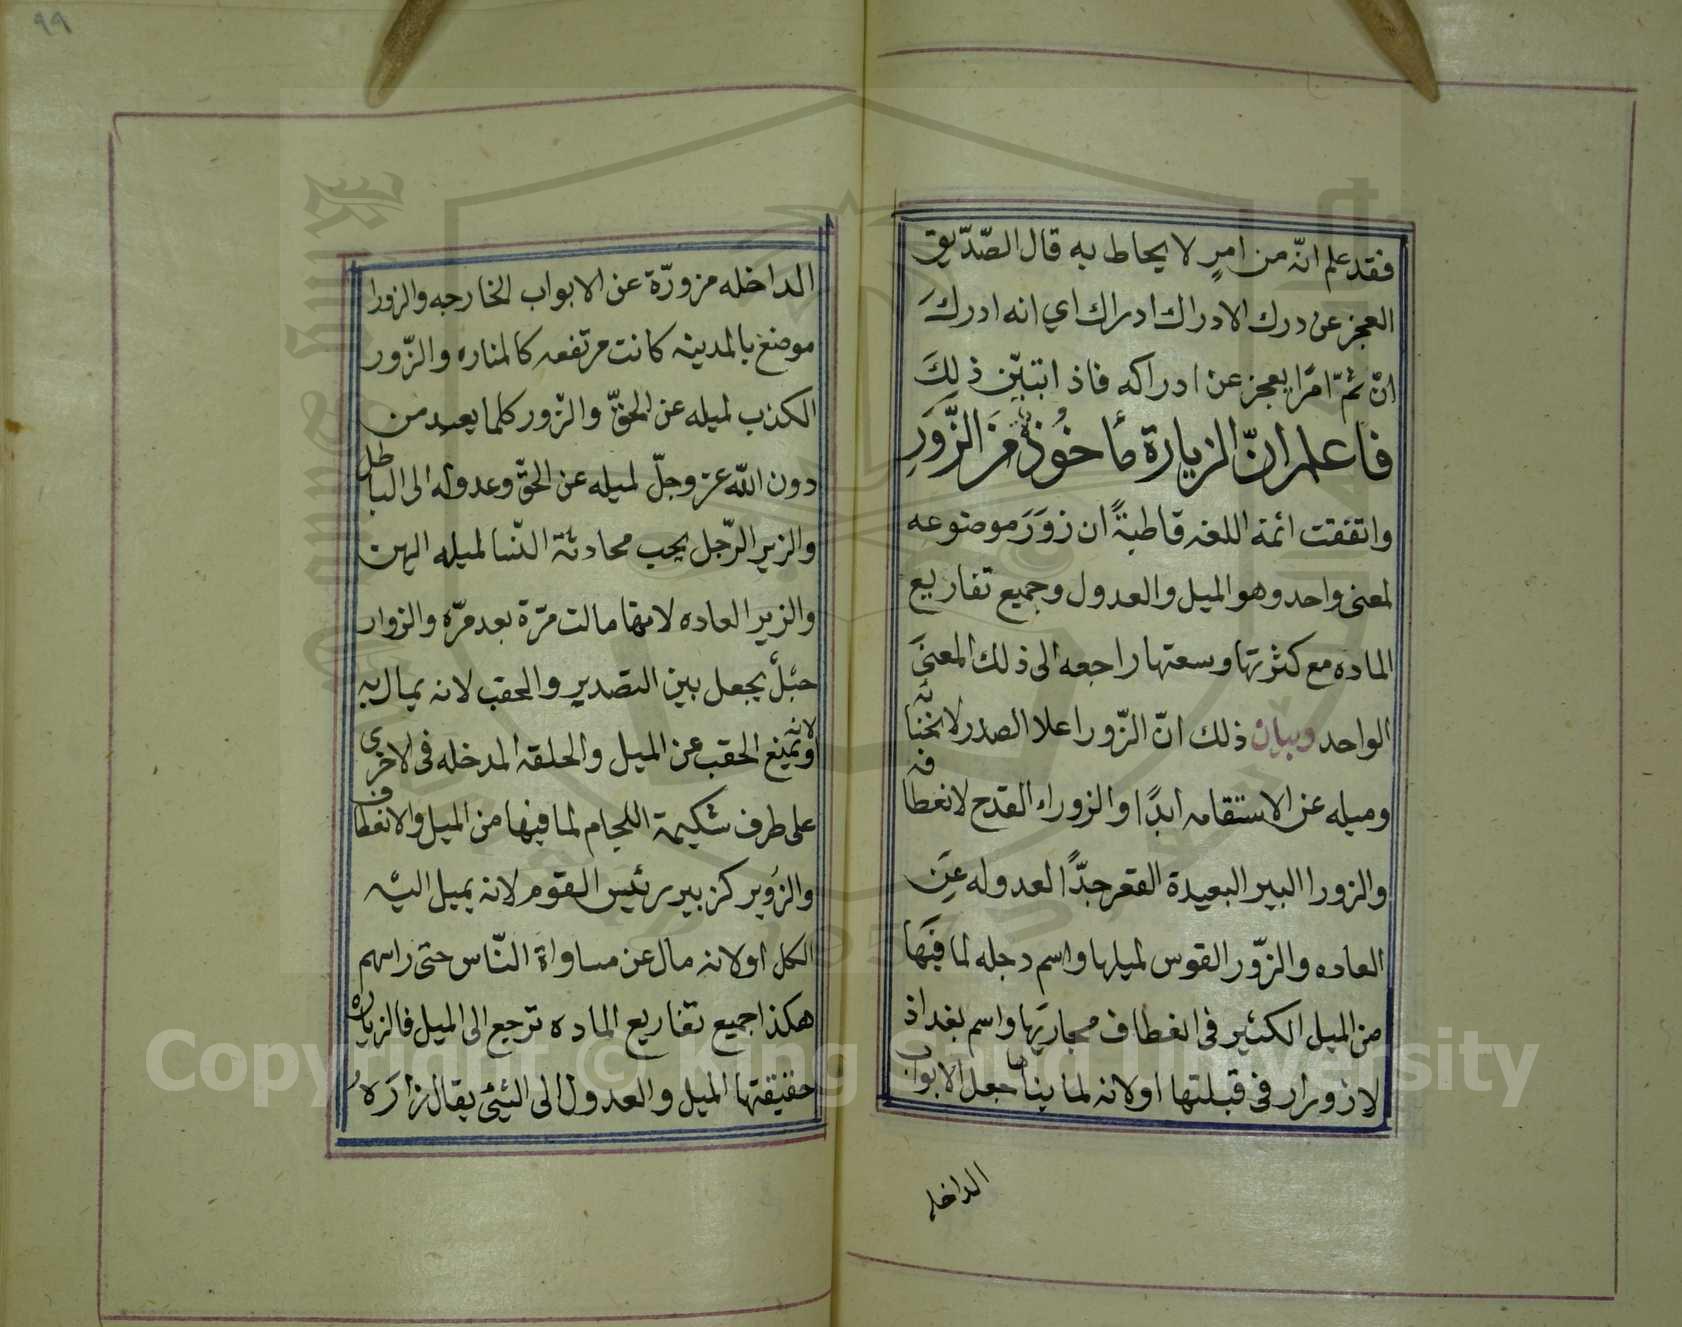 فقد علم انّه من امرٍ لا يحاط به قال الصّدّيق
العجز عن درك الادراك ادراك اي انه ادركَ
انّ ثمّ امرًا يعجز عن ادراكه فاذ اتبيّن ذلِكَ
فاعلم انّ الزيارة مأخُوذة مَن الزَّورِ
واتفقت ائمة اللغه قاطبةً ان زوَرَ موضوعه
لمعنى واحد وهو الميل والعدول وجميع تفاريع
الماده مع كثرتها وسعتها راجعه الى ذلك المعنىَ
الواحد وبيان ذلك انّ الزّور اعلا الصدر لانحنائه
وميله عن الاستقامه ابدًا والزوراء القدح لانعطافه
والزورا البير البعيدة القعر جدًّا لعدوله عِنَ
العاده والزّور القوس لميلها واسم دجله لما فيَها
من الميل الكثير في انعطاف مجاريَها واسم بغداذ
لازورار في قبلتها اولانه لما بناها جعل الابواب
الداخله
99
الداخله مزورّة عن الابواب الخارجه والزورا
موضع بالمدينه كانت مرتفعه كالمناره والزّور
الكذب لميله عن الحقّ والزّور كلما يعبد من
دون الله عزّ وجلّ لميله عن الحقّ وعدوله الى الباطل
والزير الرّجل يحب محادثة النّسا لميله اليهن
والزير العاده لانها مالت مرّة بعد مرّه والزوار
حَبْلٌ يجعل بين التصدير والحقب لانه يمال به
لانه
وتمنع الحقب عن الميل والحلقه المدخله في الاخرى
على طرف شكيمة اللجام لما فيها من الميل والانعطاف
والزوَير كزبير رئيس القوم لانه يميل اليْه
الكل اولانه مال عن مساواة النّاس حتى راسهم
هكذا جميع تفاريع الماده ترجع الى الميل فالزيارة
حقيقتها الميل والعدول الى الشئ يقال زارَهُ
Copyright © King Saud University